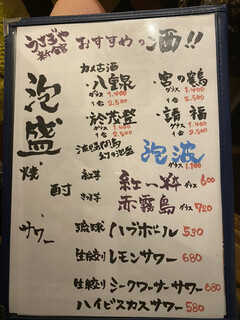 うさぎや
おすすめの酒!!
泡盛
カメ古酒
・八重泉
グラス 1.400
1合 2.500
・於茂登
グラス 1.400
1合 2.500
・宮の鶴
グラス 1.400
1合 2.500
・請福
グラス 1.400
1合 2.500
波照間島
幻の泡盛
泡波
グラス 1.100
焼酎
紅芋
紅一粋 グラス 600
赤霧島 グラス 720
サワー
琉球ハブボール 530
生絞りレモンサワー 680
生絞りシークワーサーサワー 680
ハイビスカスサワー 580